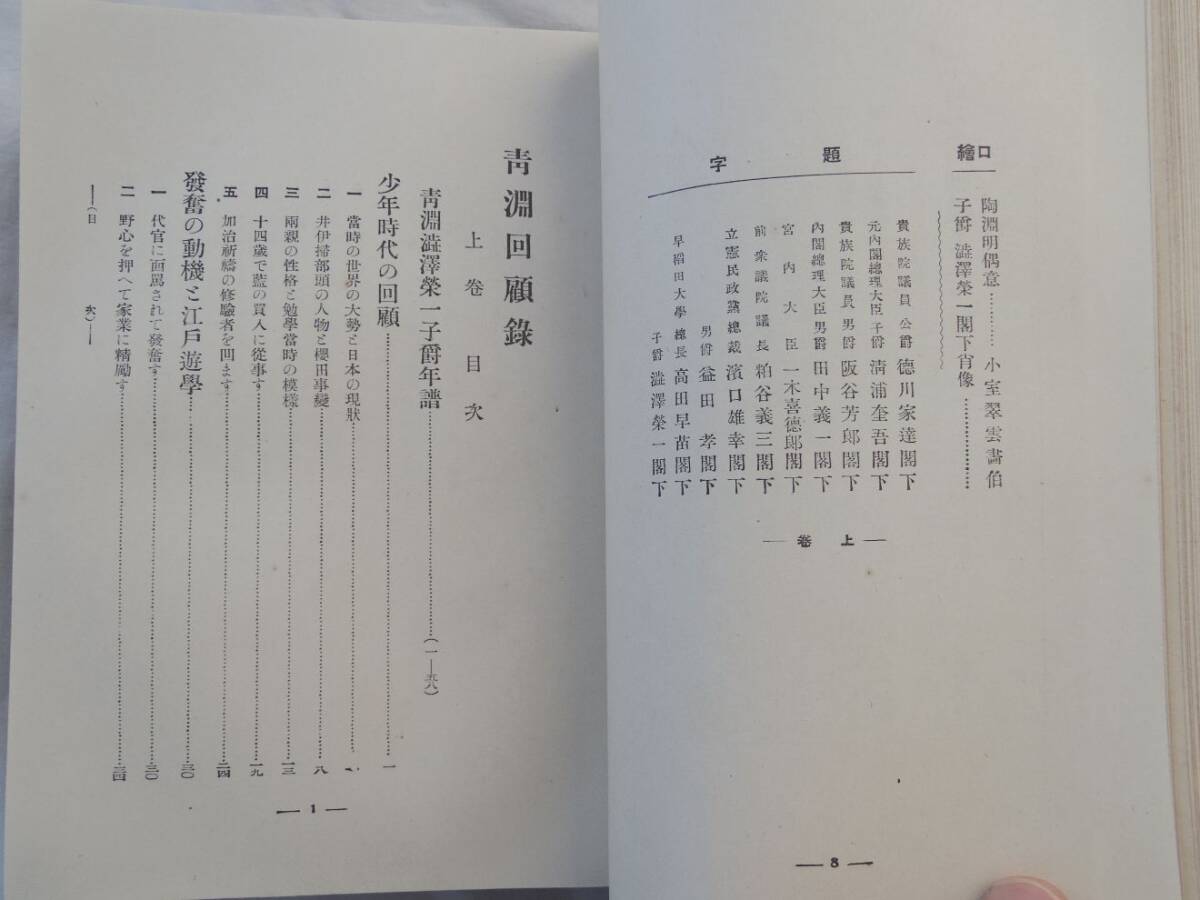 口繪
陶淵明偶意…………小室翠雲畵伯
子爵 澁澤榮一閣下肖像…………
題字
貴族院議員 公爵 德川家達閣下
元內閣總理大臣 子爵 淸浦奎吾閣下
貴族院議員 男爵 阪谷芳郞閣下
內閣總理大臣 男爵 田中義一閣下
宮內大臣 一木喜德郞閣下
前衆議院議長 粕谷義三閣下
立憲民政黨總裁 濱口雄幸閣下
男爵 益田孝閣下
早稻田大學總長 高田早苗閣下
子爵 澁澤榮一閣下
―上卷―
― 8 ―
靑淵回顧錄
上卷 目次
靑淵澁澤榮一子爵年譜…………(一―五八)
少年時代の回顧…………一
一 當時の世界の大勢と日本の現狀…………
二 井伊掃部頭の人物と櫻田事變…………八
三 兩親の性格と勉學當時の模樣…………一三
四 十四歲で藍の買入に從事す…………一九
五 加治祈禱の修驗者を凹ます…………二四
發奮の動機と江戶遊學…………三〇
一 代官に面罵されて發奮す…………三〇
二 野心を押へて家業に精勵す…………三四
――(目次)――
― 1 ―